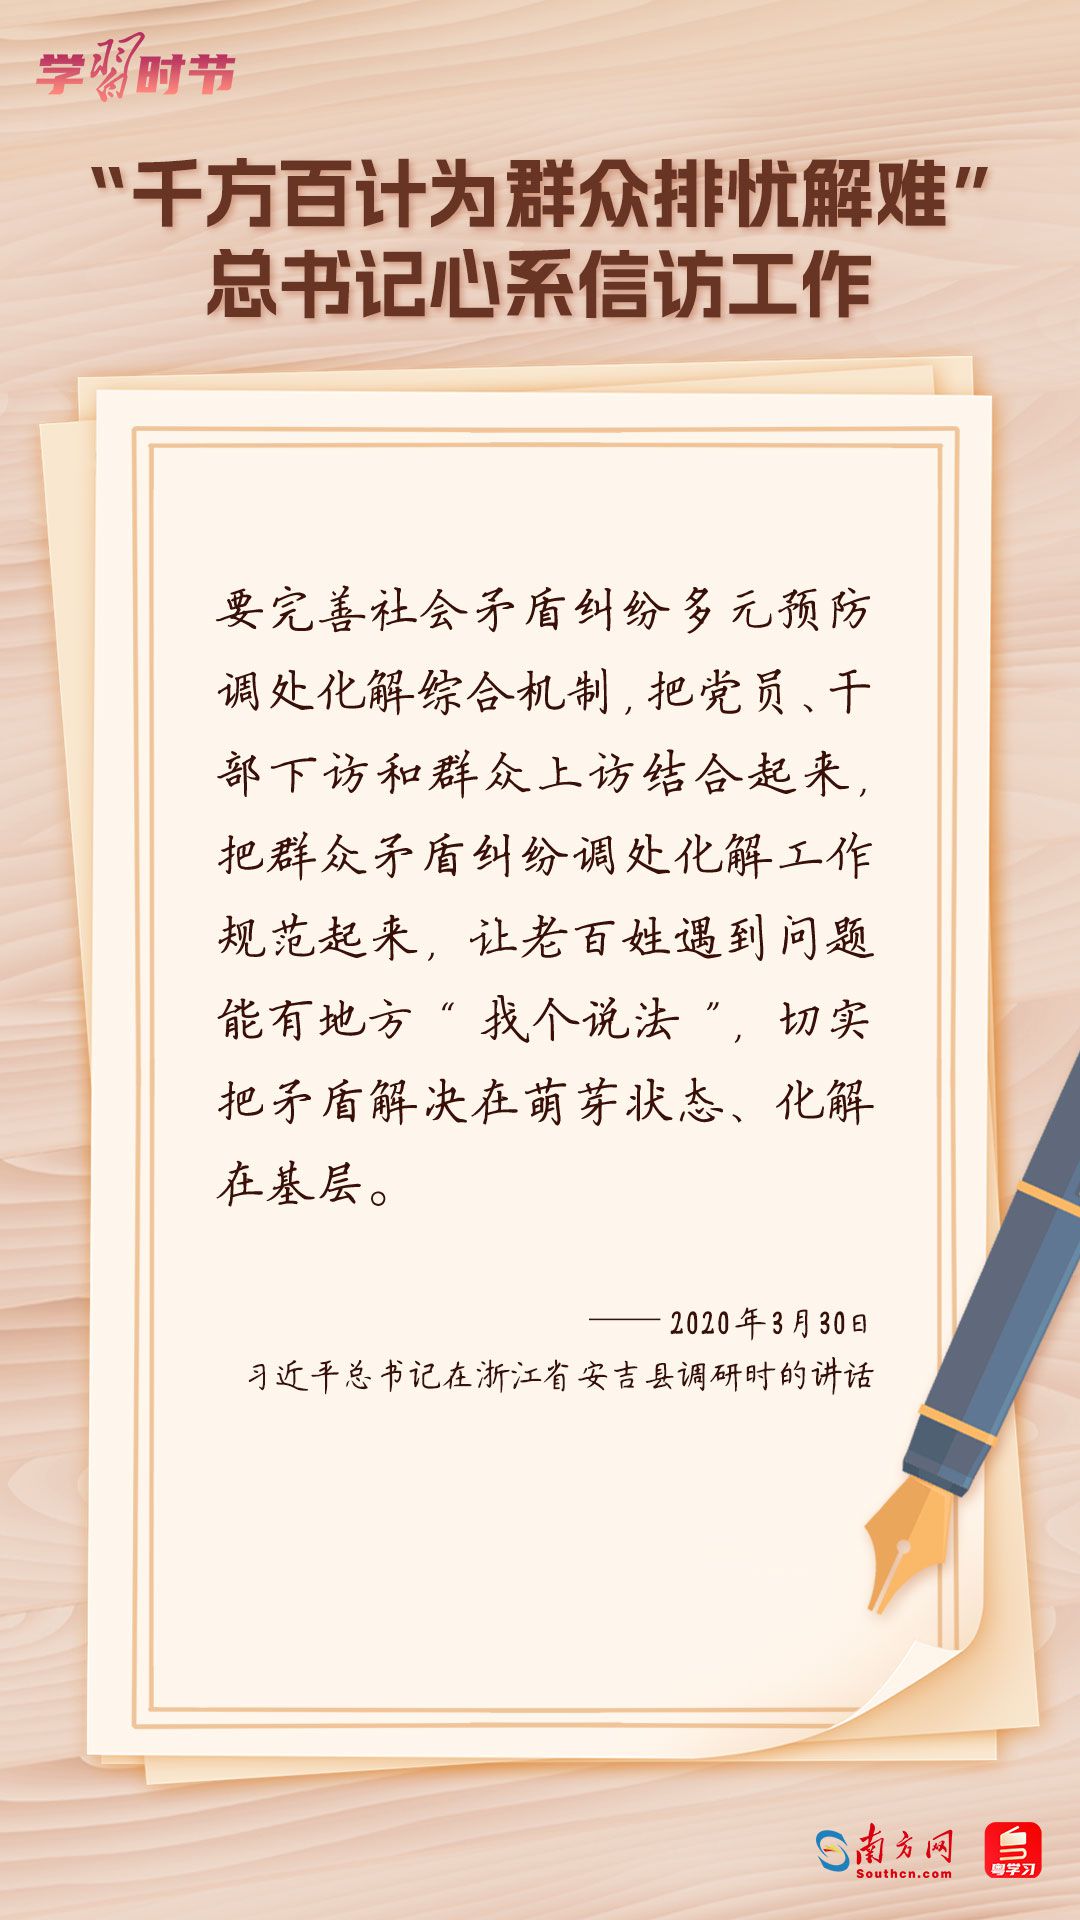 学习时节
“千方百计为群众排忧解难”
总书记心系信访工作
要完善社会矛盾纠纷多元预防
调处化解综合机制,把党员、干
部下访和群众上访结合起来,
把群众矛盾纠纷调处化解工作
规范起来,让老百姓遇到问题
能有地方“找个说法”,切实
把矛盾解决在萌芽状态、化解
在基层。
——2020年3月30日
习近平总书记在浙江省安吉县调研时的讲话
南方网
Southcn.com
粤学习